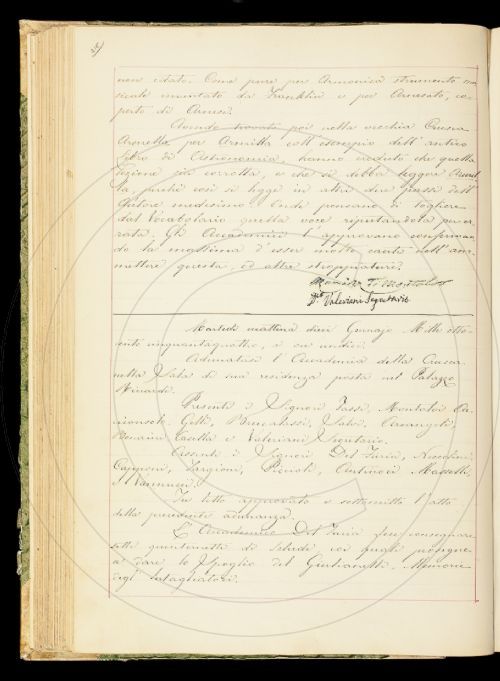 non citato. Come pure per Armonica strumento mu
sicale inventato da Franklin e per Arnesato, co
perto di Arnesi.
Avendo trovato poi nella vecchia Crusca
Armella per Armilla coll'esempio dell'antico
libro di Astronomia, hanno creduto che quella
lezione sia corrotta, e che si debba leggere Armil
la, perché così si legge in altri due passi dell'
Autore medesimo. Onde pensano di togliere
dal Vocabolario quella voce riputandola per er
rata. Gli Accademici l'approvano conferman
do la massima d'esser molto cauti nell'am
mettere queste, ed altre stroppiature.
Dr. Valeriani Segretario
Martedì mattina dieci Gennajo Mille otto
cento cinquantaquattro, a ore undici.
Adunatasi l'Accademia della Crusca
nella Sala di sua residenza posta nel Palazzo
Riccardi.
Presenti i Signori Tassi, Montalvi Ar
ciconsolo. Gelli, Brucalassi, Salvi. Arcangeli,
Bonaini Casella e Valeriani Segretario.
Assenti i Signori Del Furia, Niccolini,
Capponi, Targioni, Puccioti, Antinori Masselli,
e Vannucci.
Fu letto approvato e sottoscritto l'atto
della precedente adunanza.
L'Accademico Del Furia fece consegnare
sette quinternetti di Schede, coi quali prosegue
a dare lo Spoglio del Giulianelli. Memorie
degl'Intagliatori.